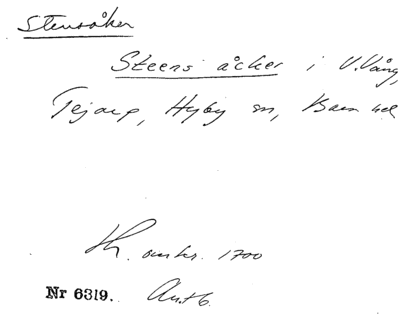 Stensåker
Steens åcker i V. Vång,
Tejarp, Hyby sn, Bara hd
omkr. 1700
Nr 6319.